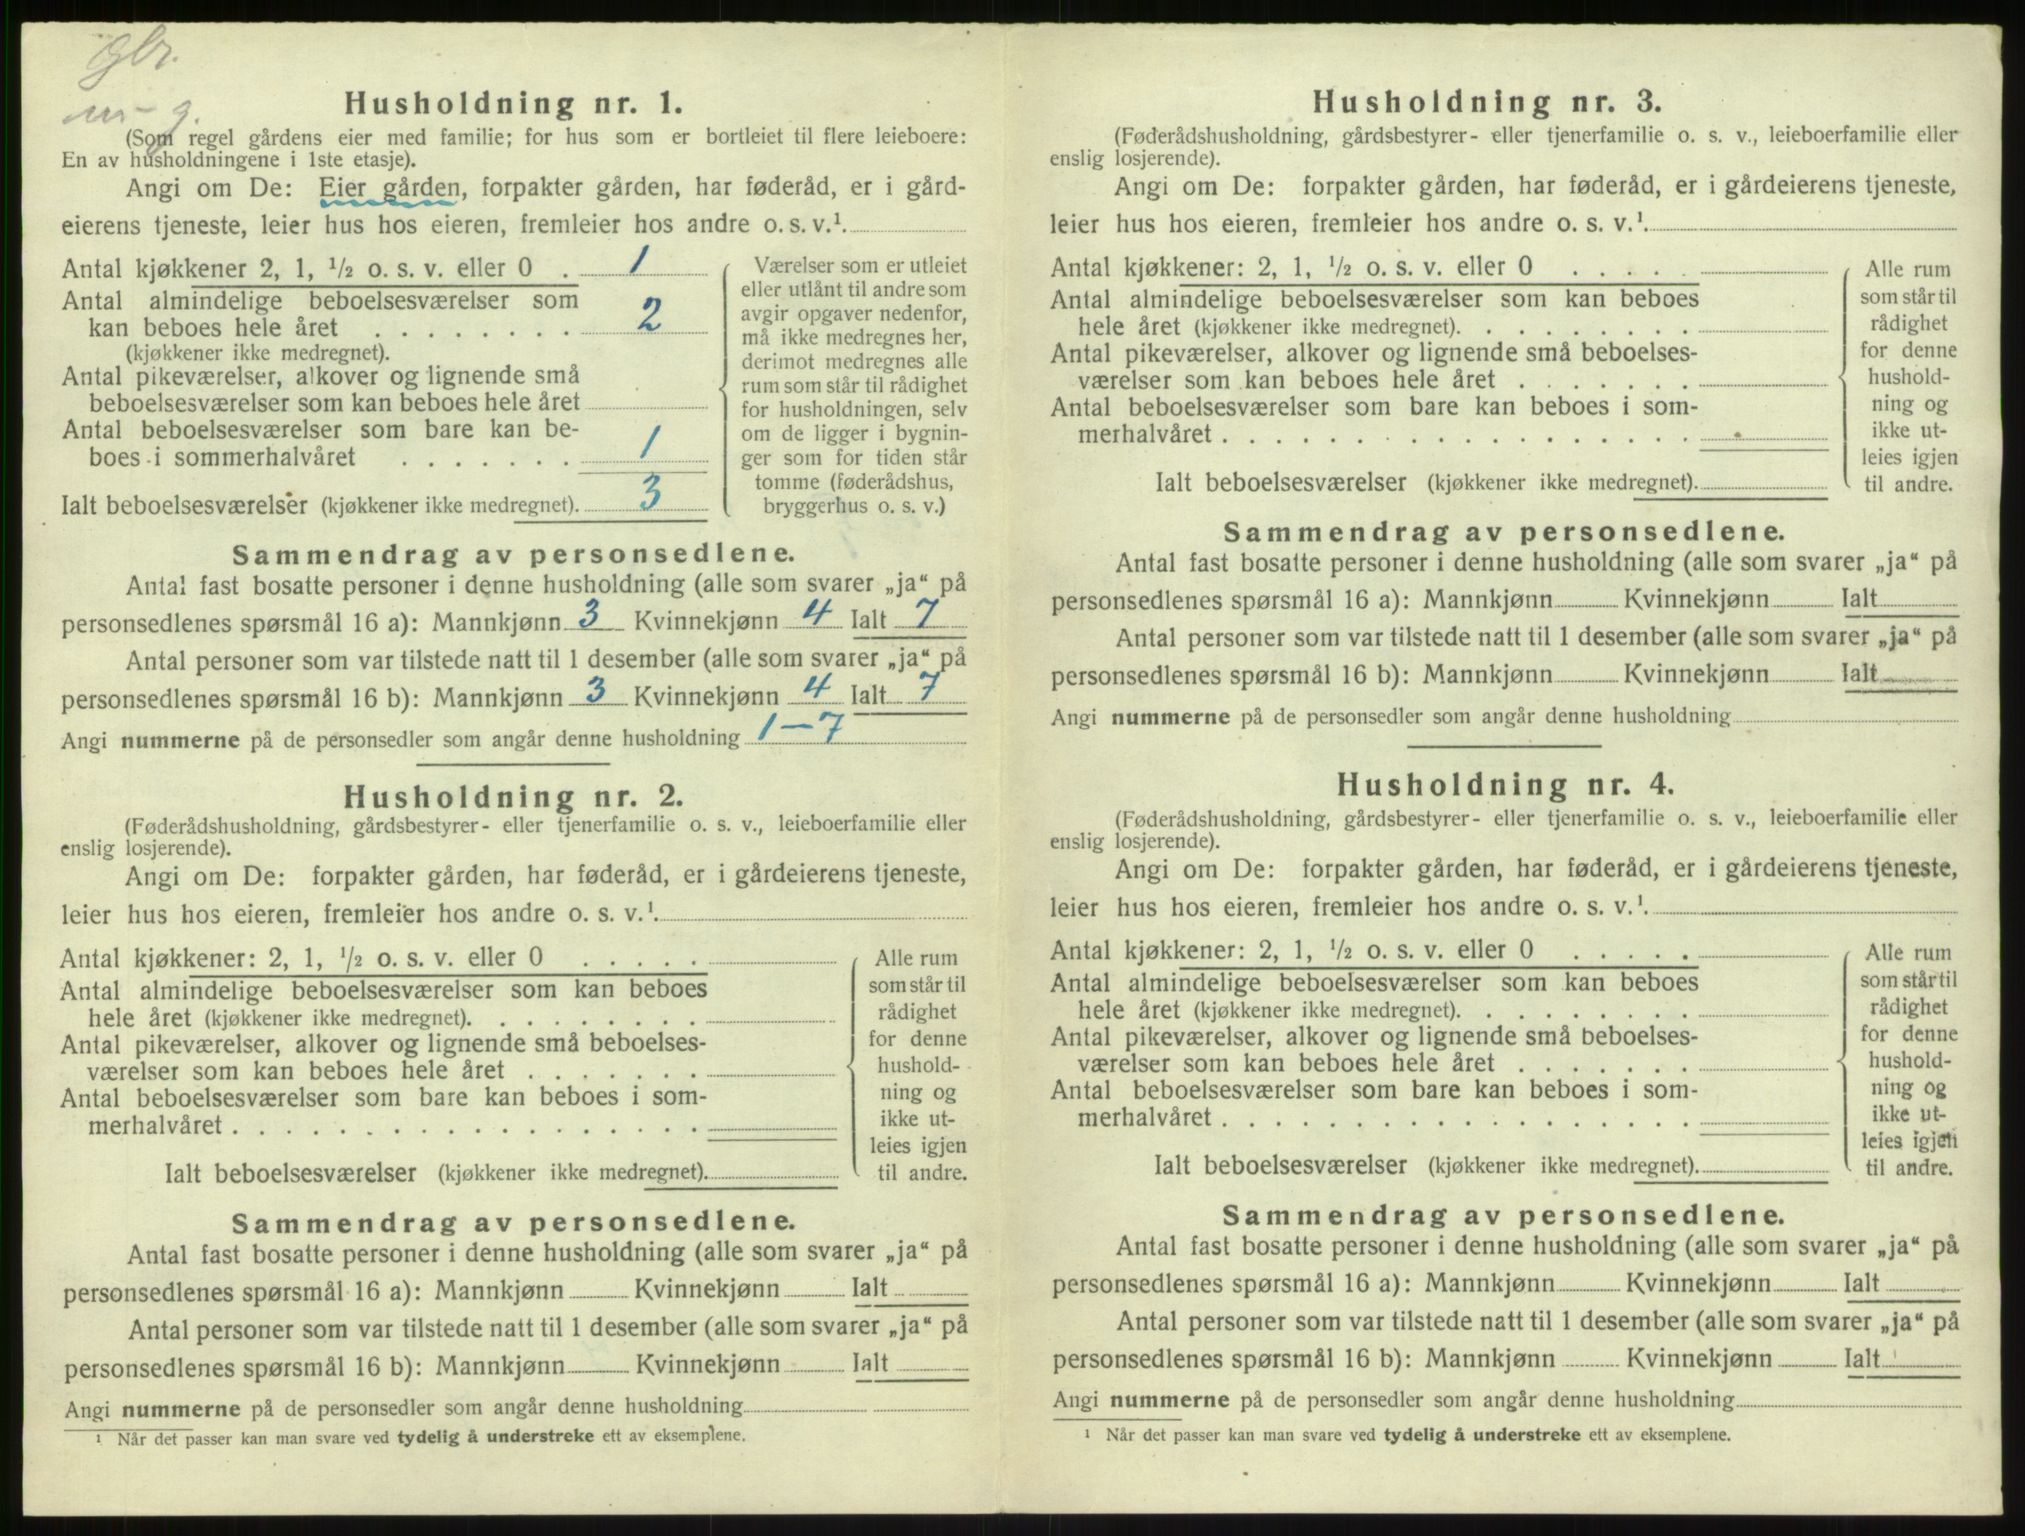 gbr.
m-g.
Husholdning nr. 1.
(Som regel gårdens eier med familie; for hus som er bortleiet til flere leieboere:
En av husholdningene i 1ste etasje).
Angi om De: Eier gården, forpakter gården, har føderåd, er i gård-
eierens tjeneste, leier hus hos eieren, fremleier hos andre o. s. v.¹.
Antal kjøkkener 2, 1, ½ o. s. v. eller 0 . 1
Antal almindelige beboelsesværelser som
kan beboes hele året . . . . . . . . 2
(kjøkkener ikke medregnet).
Antal pikeværelser, alkover og lignende små
beboelsesværelser som kan beboes hele året
Antal beboelsesværelser som bare kan be-
boes i sommerhalvåret . . . . . . . 1
Ialt beboelsesværelser (kjøkkener ikke medregnet). 3
Værelser som er utleiet
eller utlånt til andre som
avgir opgaver nedenfor,
må ikke medregnes her,
derimot medregnes alle
rum som står til rådighet
for husholdningen, selv
om de ligger i bygnin-
ger som for tiden står
tomme (føderådshus,
bryggerhus o. s. v.)
Sammendrag av personsedlene.
Antal fast bosatte personer i denne husholdning (alle som svarer „ja“ på
personsedlenes spørsmål 16 a): Mannkjønn 3 Kvinnekjønn 4 Ialt 7
Antal personer som var tilstede natt til 1 desember (alle som svarer „ja“ på
personsedlenes spørsmål 16 b): Mannkjønn 3 Kvinnekjønn 4 Ialt 7
Angi nummerne på de personsedler som angår denne husholdning 1-7
Husholdning nr. 2.
(Føderådshusholdning, gårdsbestyrer- eller tjenerfamilie o. s. v., leieboerfamilie eller
enslig losjerende).
Angi om De: forpakter gården, har føderåd, er i gårdeierens tjeneste,
leier hus hos eieren, fremleier hos andre o. s. v.¹.
Antal kjøkkener: 2, 1, ½ o. s. v. eller 0 . . . . .
Antal almindelige beboelsesværelser som kan beboes
hele året (kjøkkener ikke medregnet). . . . . . . . .
Antal pikeværelser, alkover og lignende små beboelses-
værelser som kan beboes hele året . . . . . . .
Antal beboelsesværelser som bare kan beboes i som-
merhalvåret . . . . . . . . . . . . . . . . . .
Ialt beboelsesværelser (kjøkkener ikke medregnet).
Alle rum
som står til
rådighet
for denne
hushold-
ning og
ikke ut-
leies igjen
til andre.
Sammendrag av personsedlene.
Antal fast bosatte personer i denne husholdning (alle som svarer „ja“ på
personsedlenes spørsmål 16 a): Mannkjønn Kvinnekjønn Ialt
Antal personer som var tilstede natt til 1 desember (alle som svarer „ja“ på
personsedlenes spørsmål 16 b): Mannkjønn Kvinnekjønn Ialt
Angi nummerne på de personsedler som angår denne husholdning
¹ Når det passer kan man svare ved tydelig å understreke ett av eksemplene.
Husholdning nr. 3.
(Føderådshusholdning, gårdsbestyrer- eller tjenerfamilie o. s. v., leieboerfamilie eller
enslig losjerende).
Angi om De: forpakter gården, har føderåd, er i gårdeierens tjeneste,
leier hus hos eieren, fremleier hos andre o. s. v.¹.
Antal kjøkkener: 2, 1, ½ o. s. v. eller 0 . . . . .
Antal almindelige beboelsesværelser som kan beboes
hele året (kjøkkener ikke medregnet). . . . . . . . .
Antal pikeværelser, alkover og lignende små beboelses-
værelser som kan beboes hele året . . . . . . .
Antal beboelsesværelser som bare kan beboes i som-
merhalvåret . . . . . . . . . . . . . . . . . .
Ialt beboelsesværelser (kjøkkener ikke medregnet).
Alle rum
som står til
rådighet
for denne
hushold-
ning og
ikke ut-
leies igjen
til andre.
Sammendrag av personsedlene.
Antal fast bosatte personer i denne husholdning (alle som svarer „ja“ på
personsedlenes spørsmål 16 a): Mannkjønn Kvinnekjønn Ialt
Antal personer som var tilstede natt til 1 desember (alle som svarer „ja“ på
personsedlenes spørsmål 16 b): Mannkjønn Kvinnekjønn Ialt
Angi nummerne på de personsedler som angår denne husholdning
Husholdning nr. 4.
(Føderådshusholdning, gårdsbestyrer- eller tjenerfamilie o. s. v., leieboerfamilie eller
enslig losjerende).
Angi om De: forpakter gården, har føderåd, er i gårdeierens tjeneste,
leier hus hos eieren, fremleier hos andre o. s. v.¹.
Antal kjøkkener: 2, 1, ½ o. s. v. eller 0 . . . . .
Antal almindelige beboelsesværelser som kan beboes
hele året (kjøkkener ikke medregnet). . . . . . . . .
Antal pikeværelser, alkover og lignende små beboelses-
værelser som kan beboes hele året . . . . . . .
Antal beboelsesværelser som bare kan beboes i som-
merhalvåret . . . . . . . . . . . . . . . . . .
Ialt beboelsesværelser (kjøkkener ikke medregnet).
Alle rum
som står til
rådighet
for denne
hushold-
ning og
ikke ut-
leies igjen
til andre.
Sammendrag av personsedlene.
Antal fast bosatte personer i denne husholdning (alle som svarer „ja“ på
personsedlenes spørsmål 16 a): Mannkjønn Kvinnekjønn Ialt
Antal personer som var tilstede natt til 1 desember (alle som svarer „ja“ på
personsedlenes spørsmål 16 b): Mannkjønn Kvinnekjønn Ialt
Angi nummerne på de personsedler som angår denne husholdning
¹ Når det passer kan man svare ved tydelig å understreke ett av eksemplene.